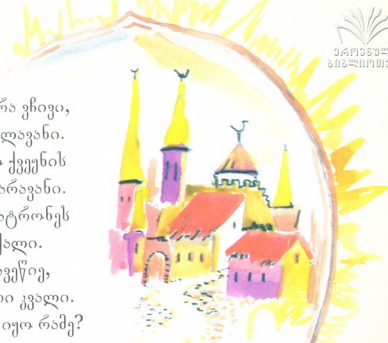 ეროვნული
ბიბლიოთეკა
რა ვჩივი,
ლავანი.
ქვეყნის
არავანი.
ატრონეს
ქალი.
ვეწიე,
ი კვალი.
იყო რამე?